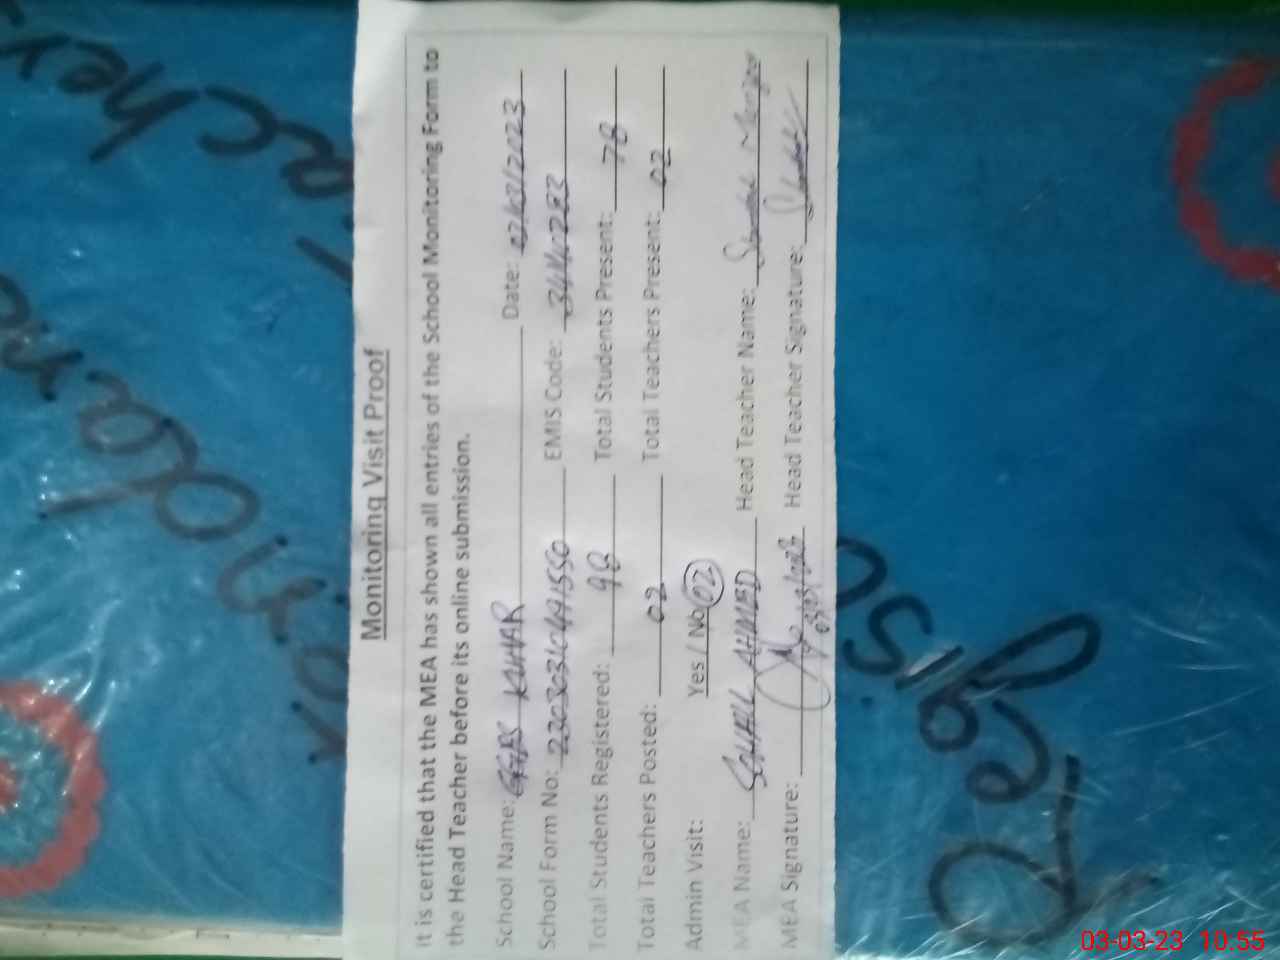 Monitoring Visit Proof
It is certified that the MEA has shown all entries of the School Monitoring Form to
the Head Teacher before its online submission.
School Name: GGPS KAHAR Date: 03/03/2023
School Form No: EMIS Code:
Total Students Registered: 98 Total Students Present: 78
Total Teachers Posted: 02 Total Teachers Present: 02
Admin Visit: Yes / No 02
MEA Name: SOHAIL AHMED Head Teacher Name:
MEA Signature: Head Teacher Signature:
Regis
03-03-23 10:55